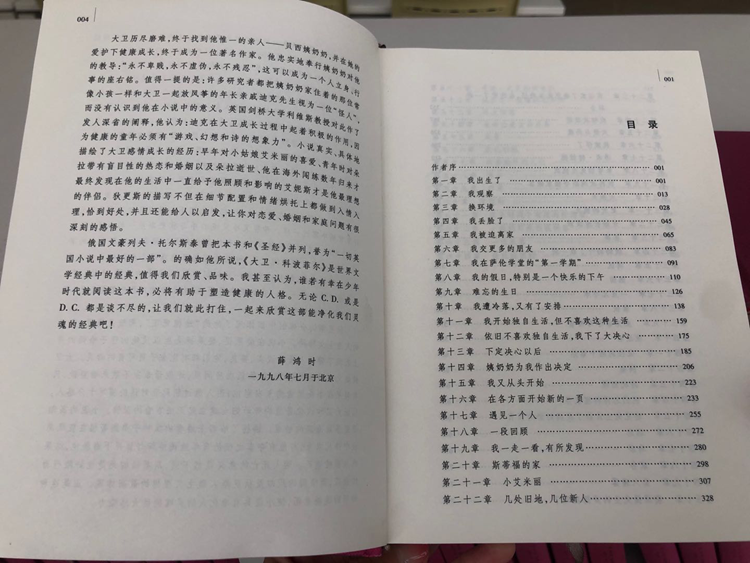 004
大卫历尽磨难,终于找到他惟一的亲人——贝西姨奶奶,并在她的
爱护下健康成长,终于成为一位著名作家。他忠实地奉行姨奶奶对他
的教导:“永不卑贱,永不虚伪,永不残忍”,这可以成为一个人立身、行
事的座右铭。值得一提的是:许多研究者都把姨奶奶家住着的那位常
像小孩一样和大卫一起放风筝的年长亲戚迪克先生视为一位“怪人”,
而没有认识到他在小说中的意义。英国剑桥大学利维斯教授对此作了
发人深省的阐释,他认为:迪克在大卫成长过程中起着积极的作用,因
为健康的童年必须有“游戏、幻想和诗的想象力”。小说真实、具体地
描绘了大卫感情成长的经历:早年对小姑娘艾米丽的喜爱、青年时对朵
拉带有盲目性的热恋和婚姻以及朵拉逝世、他在海外闯练数年归来才
最终发现在他的生活中一直给予他照顾和影响的艾妮斯才是他最理想
的伴侣。狄更斯的描写不但在细节配置和情绪烘托上都做到入情入
理,恰到好处,并且还能给人以启发,让你对恋爱、婚姻和家庭问题有很
深刻的感悟。
俄国文豪列夫·托尔斯泰曾把本书和《圣经》并列,誉为“一切英
国小说中最好的一部”。的确如他所说,《大卫·科波菲尔》是世界文
学经典中的经典,值得我们欣赏、品味。我甚至认为,谁若有幸在少年
时代就阅读这本书,必将有助于塑造健康的人格。无论 C. D. 或是
D. C. 都是谈不尽的,让我们就此打住,一起来欣赏这部能净化我们灵
魂的经典吧!
薛鸿时
一九九八年七月于北京
001
目录
作者序 001
第一章 我出生了 001
第二章 我观察 013
第三章 换环境 028
第四章 我丢脸了 045
第五章 我被迫离家 065
第六章 我交更多的朋友 083
第七章 我在萨伦学堂的“第一学期” 091
第八章 我的假日,特别是一个快乐的下午 110
第九章 难忘的生日 126
第十章 我遭冷落,又有了安排 138
第十一章 我开始独自生活,但不喜欢这种生活 159
第十二章 依旧不喜欢独自生活,我下了大决心 175
第十三章 下定决心以后 185
第十四章 姨奶奶为我作出决定 206
第十五章 我又从头开始 223
第十六章 在各方面开始新的一页 233
第十七章 遇见一个人 255
第十八章 一段回顾 272
第十九章 我一走一看,有所发现 280
第二十章 斯蒂福的家 298
第二十一章 小艾米丽 307
第二十二章 几处旧地,几位新人 328